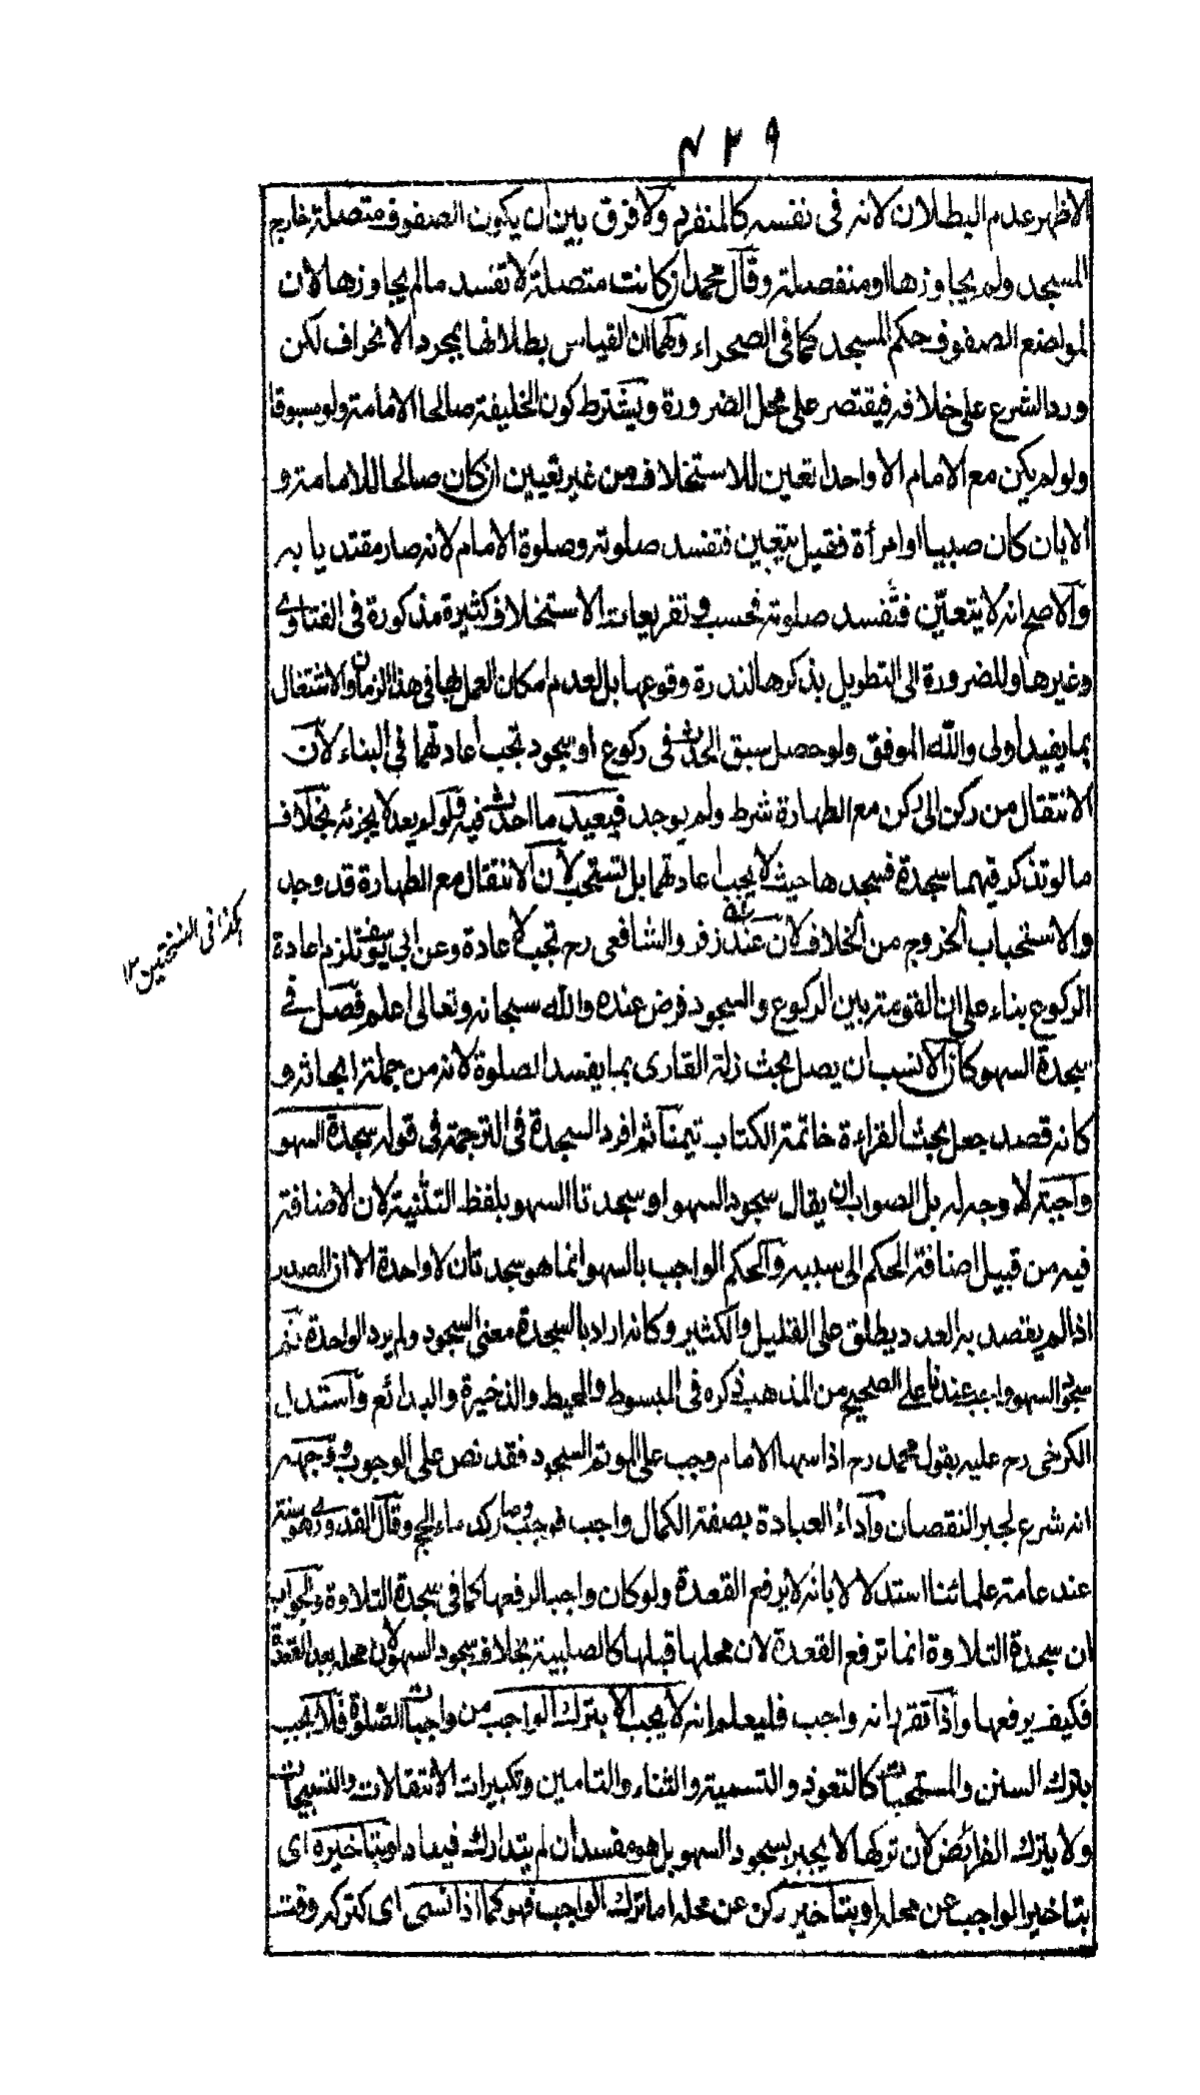 ٤٣٩
الاظهر عدم البطلان لانه فى نفسه كالمنفرد ولا فرق بين ان يكون الصفوف متصلة خارج
المسجد ولم يجاوزها او منفصلة وقال محمد ان كانت متصلة لا تفسد مالم يجاوزها لان
لمواضع الصفوف حكم المسجد كما فى الصحراء ولهما ان القياس بطلانها بمجرد الانحراف لكن
ورد الشرع على خلافه فيقتصر على محل الضرورة ويشترط كون الخليفة صالحا الامامة ولو مسبوقا
ولو لم يكن مع الامام الا واحدا تعين للاستخلاف من غير تعيين ان كان صالحا للامامة و
الا بان كان صبيا او امرأة فقيل يتعين فتفسد صلوته وصلوة الامام لانه صار مقتديا به
والاصح انه لا يتعين فتفسد صلوته فحسب وتفريعات الاستخلاف كثيرة مذكورة فى الفتاوى
وغيرها ولا ضرورة الى التطويل بذكرها لندرة وقوعها بل لعدم امكان العمل بها فى هذا الزمان والاشتغال
بما يفيد اولى والله الموفق ولو حصل سبق الحدث فى ركوع او سجود تجب اعادتهما فى البناء لان
الانتقال من ركن الى ركن مع الطهارة شرط ولم يوجد فيعيد ما احدث فيه فلو لم يعد لا يجزئه بخلاف
ما لو تذكر فيهما سجدة فسجدها حيث لا يجب اعادتهما بل تستحب لان الانتقال مع الطهارة قد وجد
والاستحباب الخروج من الخلاف لان عند زفر والشافعى رح تجب الاعادة وعن ابى يوسف تلزم اعادة
الركوع بناء على ان القومة بين الركوع والسجود فرض عنده والله سبحانه وتعالى اعلم فصل فى
سجدة السهو كان الانسب ان يصل بحث زلة القارى بما يفسد الصلوة لانه من جملة ابحاثه و
كانه قصد جعل بحث القراءة خاتمة الكتاب تيمنا ثم افرد السجدة فى الترجمة فى قوله سجدة السهو
واجبة لا وجه له بل الصواب ان يقال سجود السهو او سجدتا السهو بلفظ التثنية لان الاضافة
فيه من قبيل اضافة الحكم الى سببه والحكم الواجب بالسهو انما هو سجدتان لا واحدة الا ان المصدر
اذا لم يقصد به العدد يطلق على القليل والكثير وكانه اراد بالسجدة معنى السجود ولم يرد الواحدة ثم
سجود السهو واجب عندنا على الصحيح من المذهب ذكره فى المبسوط والمحيط والذخيرة والبدائع واستدل
الكرخى رح عليه بقول محمد رح اذا سها الامام وجب على المؤتم السجود فقد نص على الوجوب ووجهه
انه شرع لجبر النقصان واداء العبادة بصفة الكمال واجب فوجب وصار كدماء الحج وقال القدورى هو سنة
عند عامة علمائنا استدلالا بانه لا يرفع القعدة ولو كان واجبا لرفعها كما فى سجدة التلاوة والجواب
ان سجدة التلاوة انما ترفع القعدة لان محلها قبلها كالصلبية بخلاف سجود السهو لان محله بعد القعدة
فكيف يرفعها واذا تقرر انه واجب فليعلم انه لا يجب الا بترك الواجب من واجبات الصلوة فلا يجب
بترك السنن والمستحبات كالتعوذ والتسمية والثناء والتامين وتكبيرات الانتقالات والتسبيحات
ولا بترك الفرائض لان تركها لا يجبر بسجود السهو بل هو مفسد ان لم يتدارك فيعاد او بتاخيره اى
بتاخير الواجب عن محله او بتاخير ركن عن محله اما ترك الواجب فهو كما اذا نسى اى كتركه وقت
هكذا فى النسختين ١٢